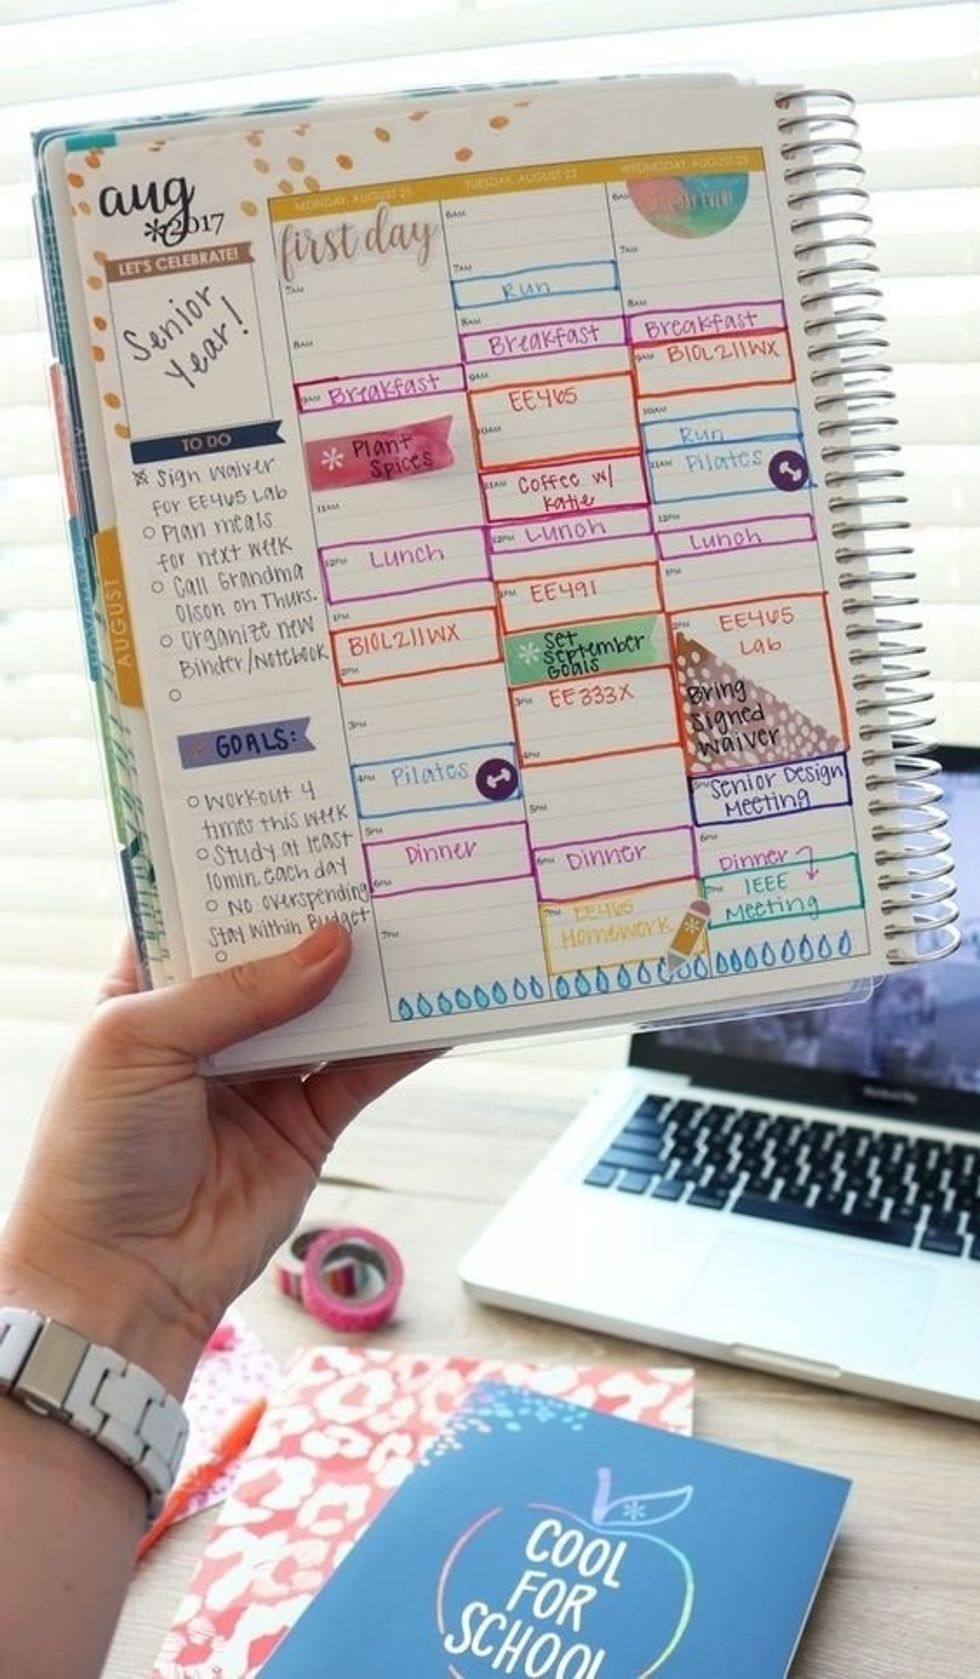 aug
*2017
LET'S CELEBRATE!
Senior
Year!
TO DO
Sign waiver
for EE465 Lab
Plan meals
for next week
Call Grandma
Olson on Thurs.
Organize new
Binder/Notebook
GOALS:
Workout 4
times this week
Study at least
10min. each day
No overspending
Stay within Budget
AUGUST
MONDAY, AUGUST 21
first day
7AM
8AM
9AM Breakfast
* Plant
Spices
11AM
12PM Lunch
1PM
BIOL211WX
2PM
3PM
4PM Pilates
5PM
Dinner
6PM
7PM
TUESDAY, AUGUST 22
6AM
7AM
Run
8AM
Breakfast
9AM
EE465
10AM
11AM Coffee w/
Katie
12PM Lunch
1PM EE491
* Set
September
Goals
3PM EE333X
4PM
5PM
6PM Dinner
7PM EE465
Homework
WEDNESDAY, AUGUST 23
6AM
7AM
8AM
Breakfast
9AM BIOL211WX
10AM
Run
11AM Pilates
12PM
Lunch
1PM
2PM EE465
Lab
Bring
Signed
Waiver
5PM Senior Design
Meeting
6PM
Dinner
7PM IEEE
Meeting
COOL
FOR
SCHOOL